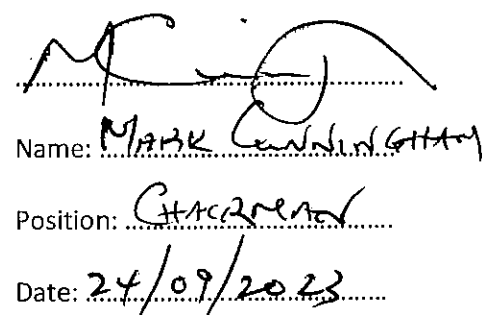 Name: MARK CUNNINGHAM
Position: CHAIRMAN
Date: 24/09/2023